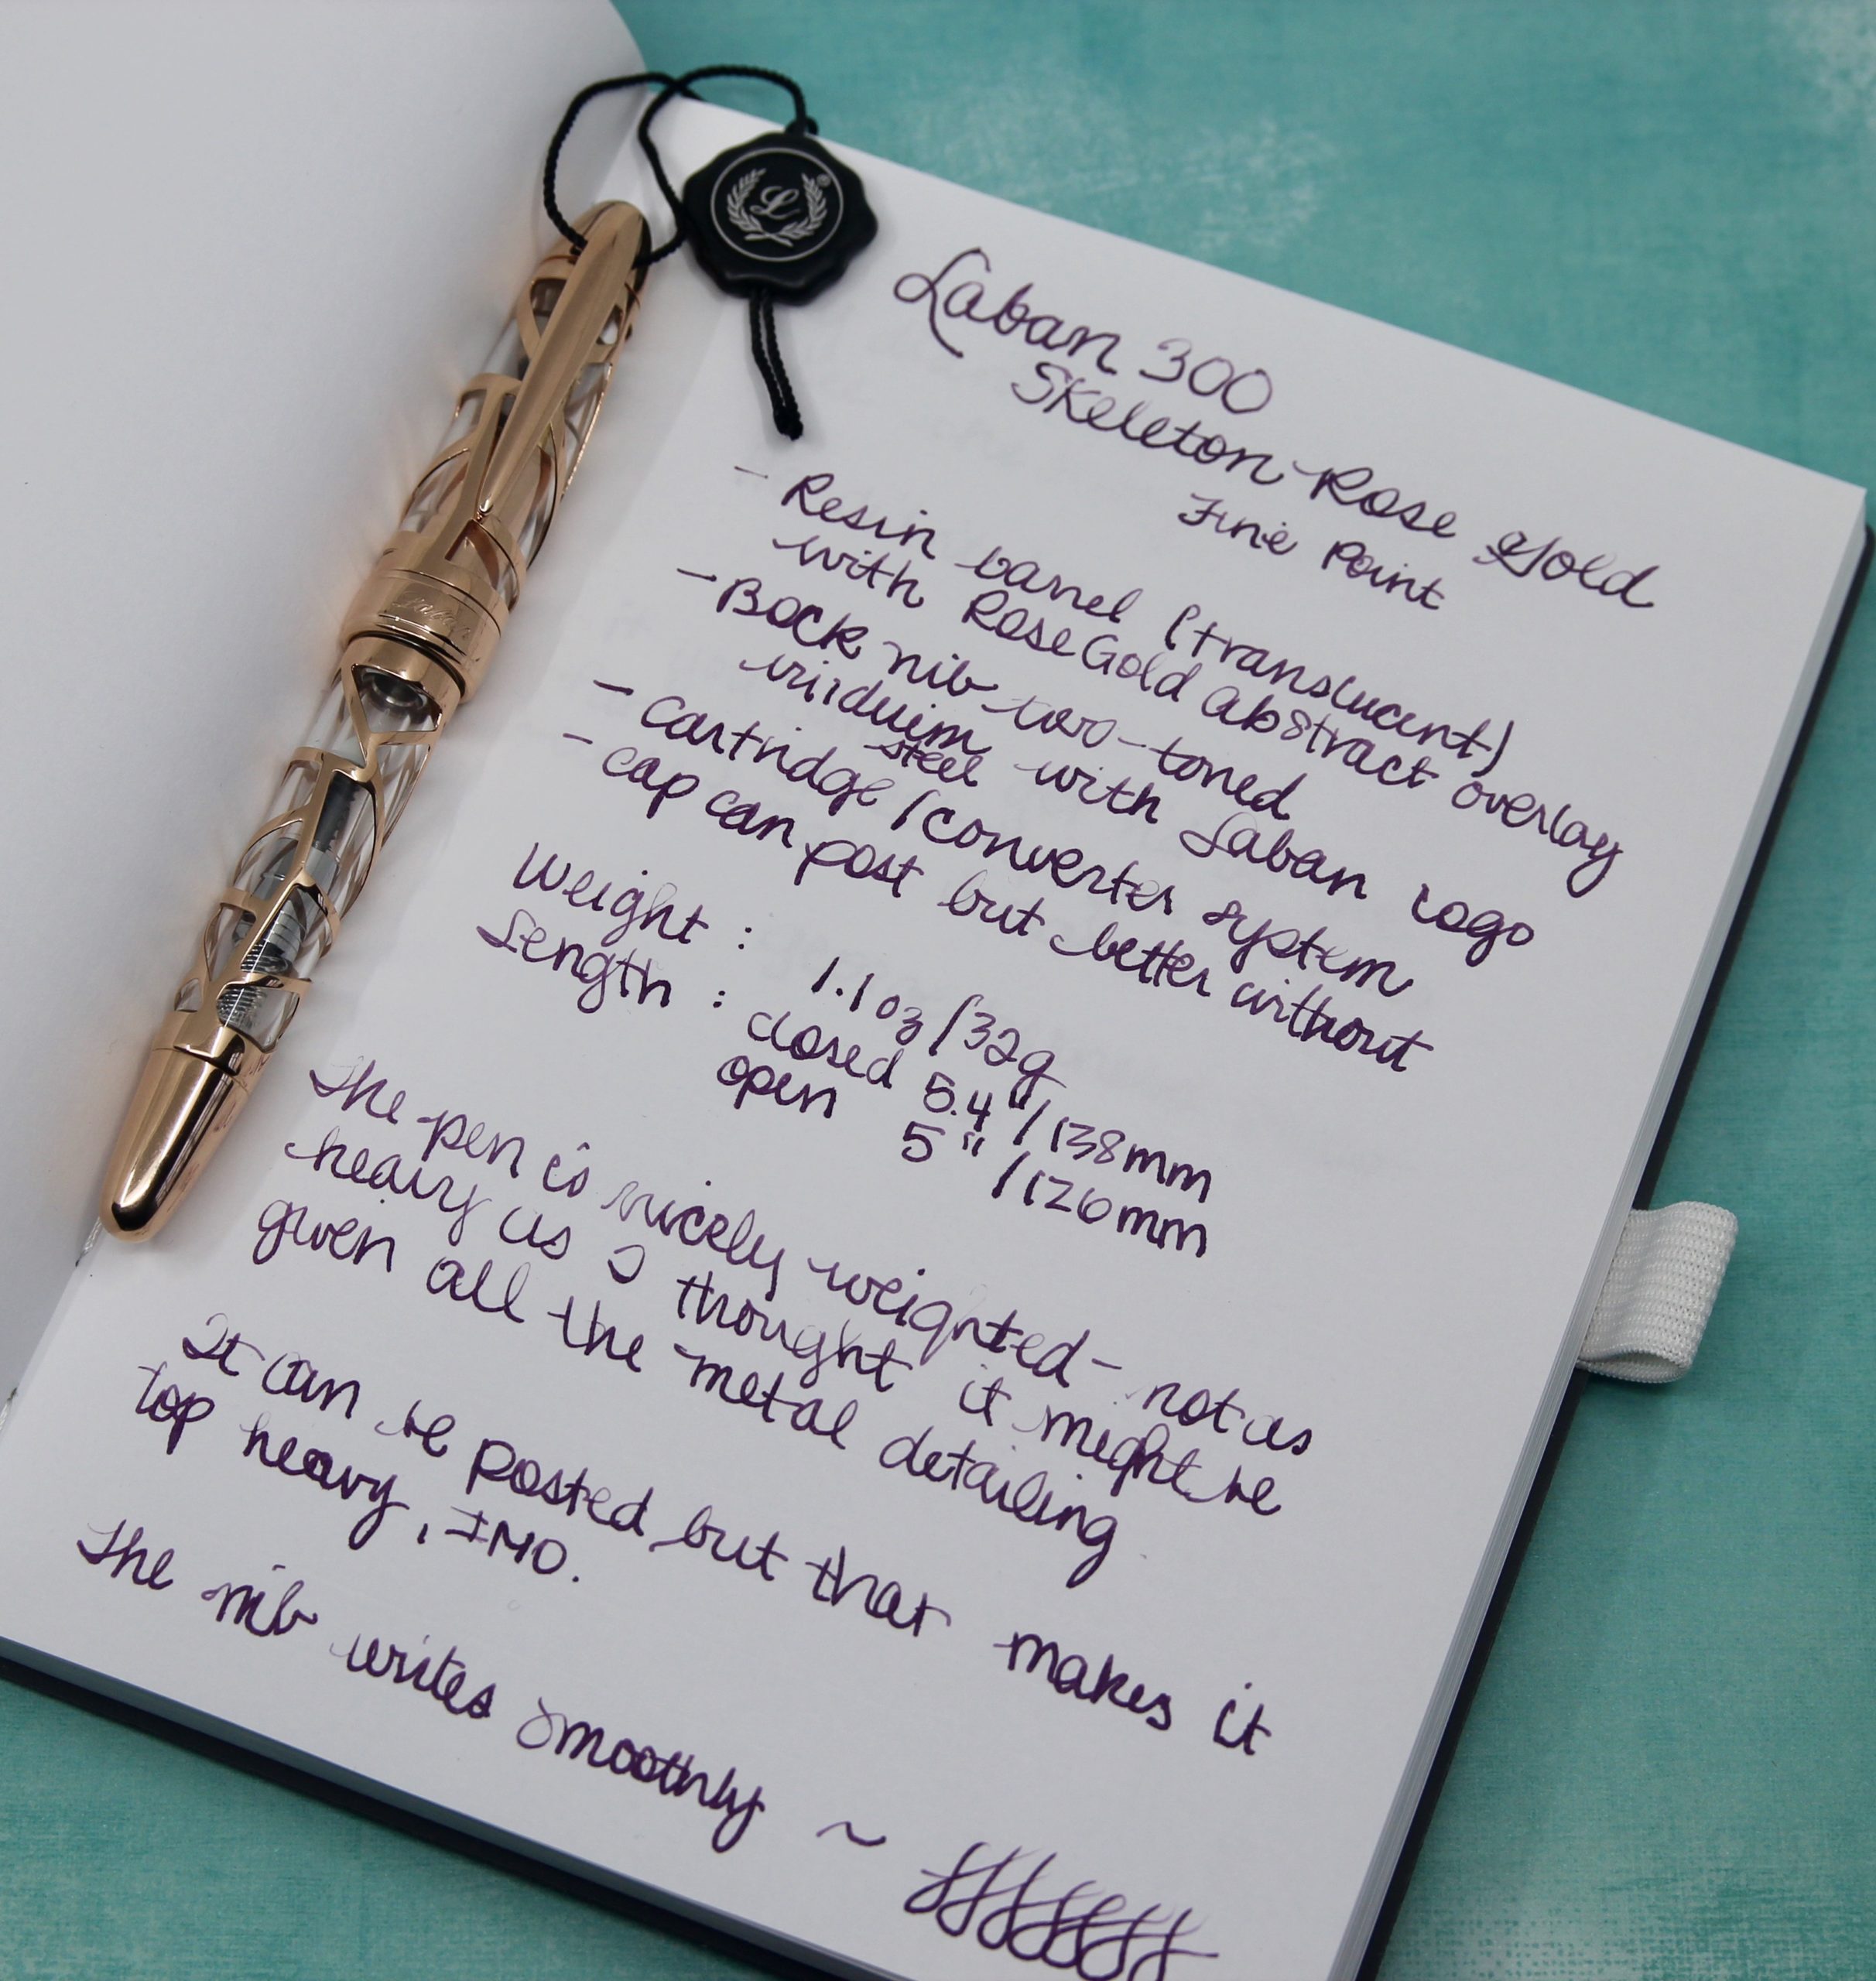 L
®
Laban 300
Skeleton Rose Gold
Fine Point
- Resin barrel (translucent)
with Rose Gold abstract overlay
- Bock nib two-toned
iriduim steel with Laban logo
- cartridge/converter system
- cap can post but better without
Weight: 1.1 oz/32g
Length: closed 5.4"/138mm
open 5"/126mm
The pen is nicely weighted - not as
heavy as I thought it might be
given all the metal detailing
It can be posted but that makes it
top heavy, IMO.
The nib writes smoothly ~